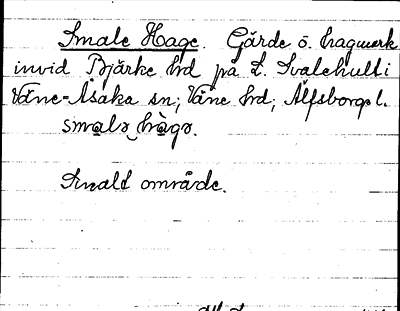 Smale Hage. Gärde o. hagmark
invid Bjärke hrd på L. Svalehult i
Väne-Åsaka sn; Väne hrd; Älfsborgs l.
smalə hàgə.
Smalt område.